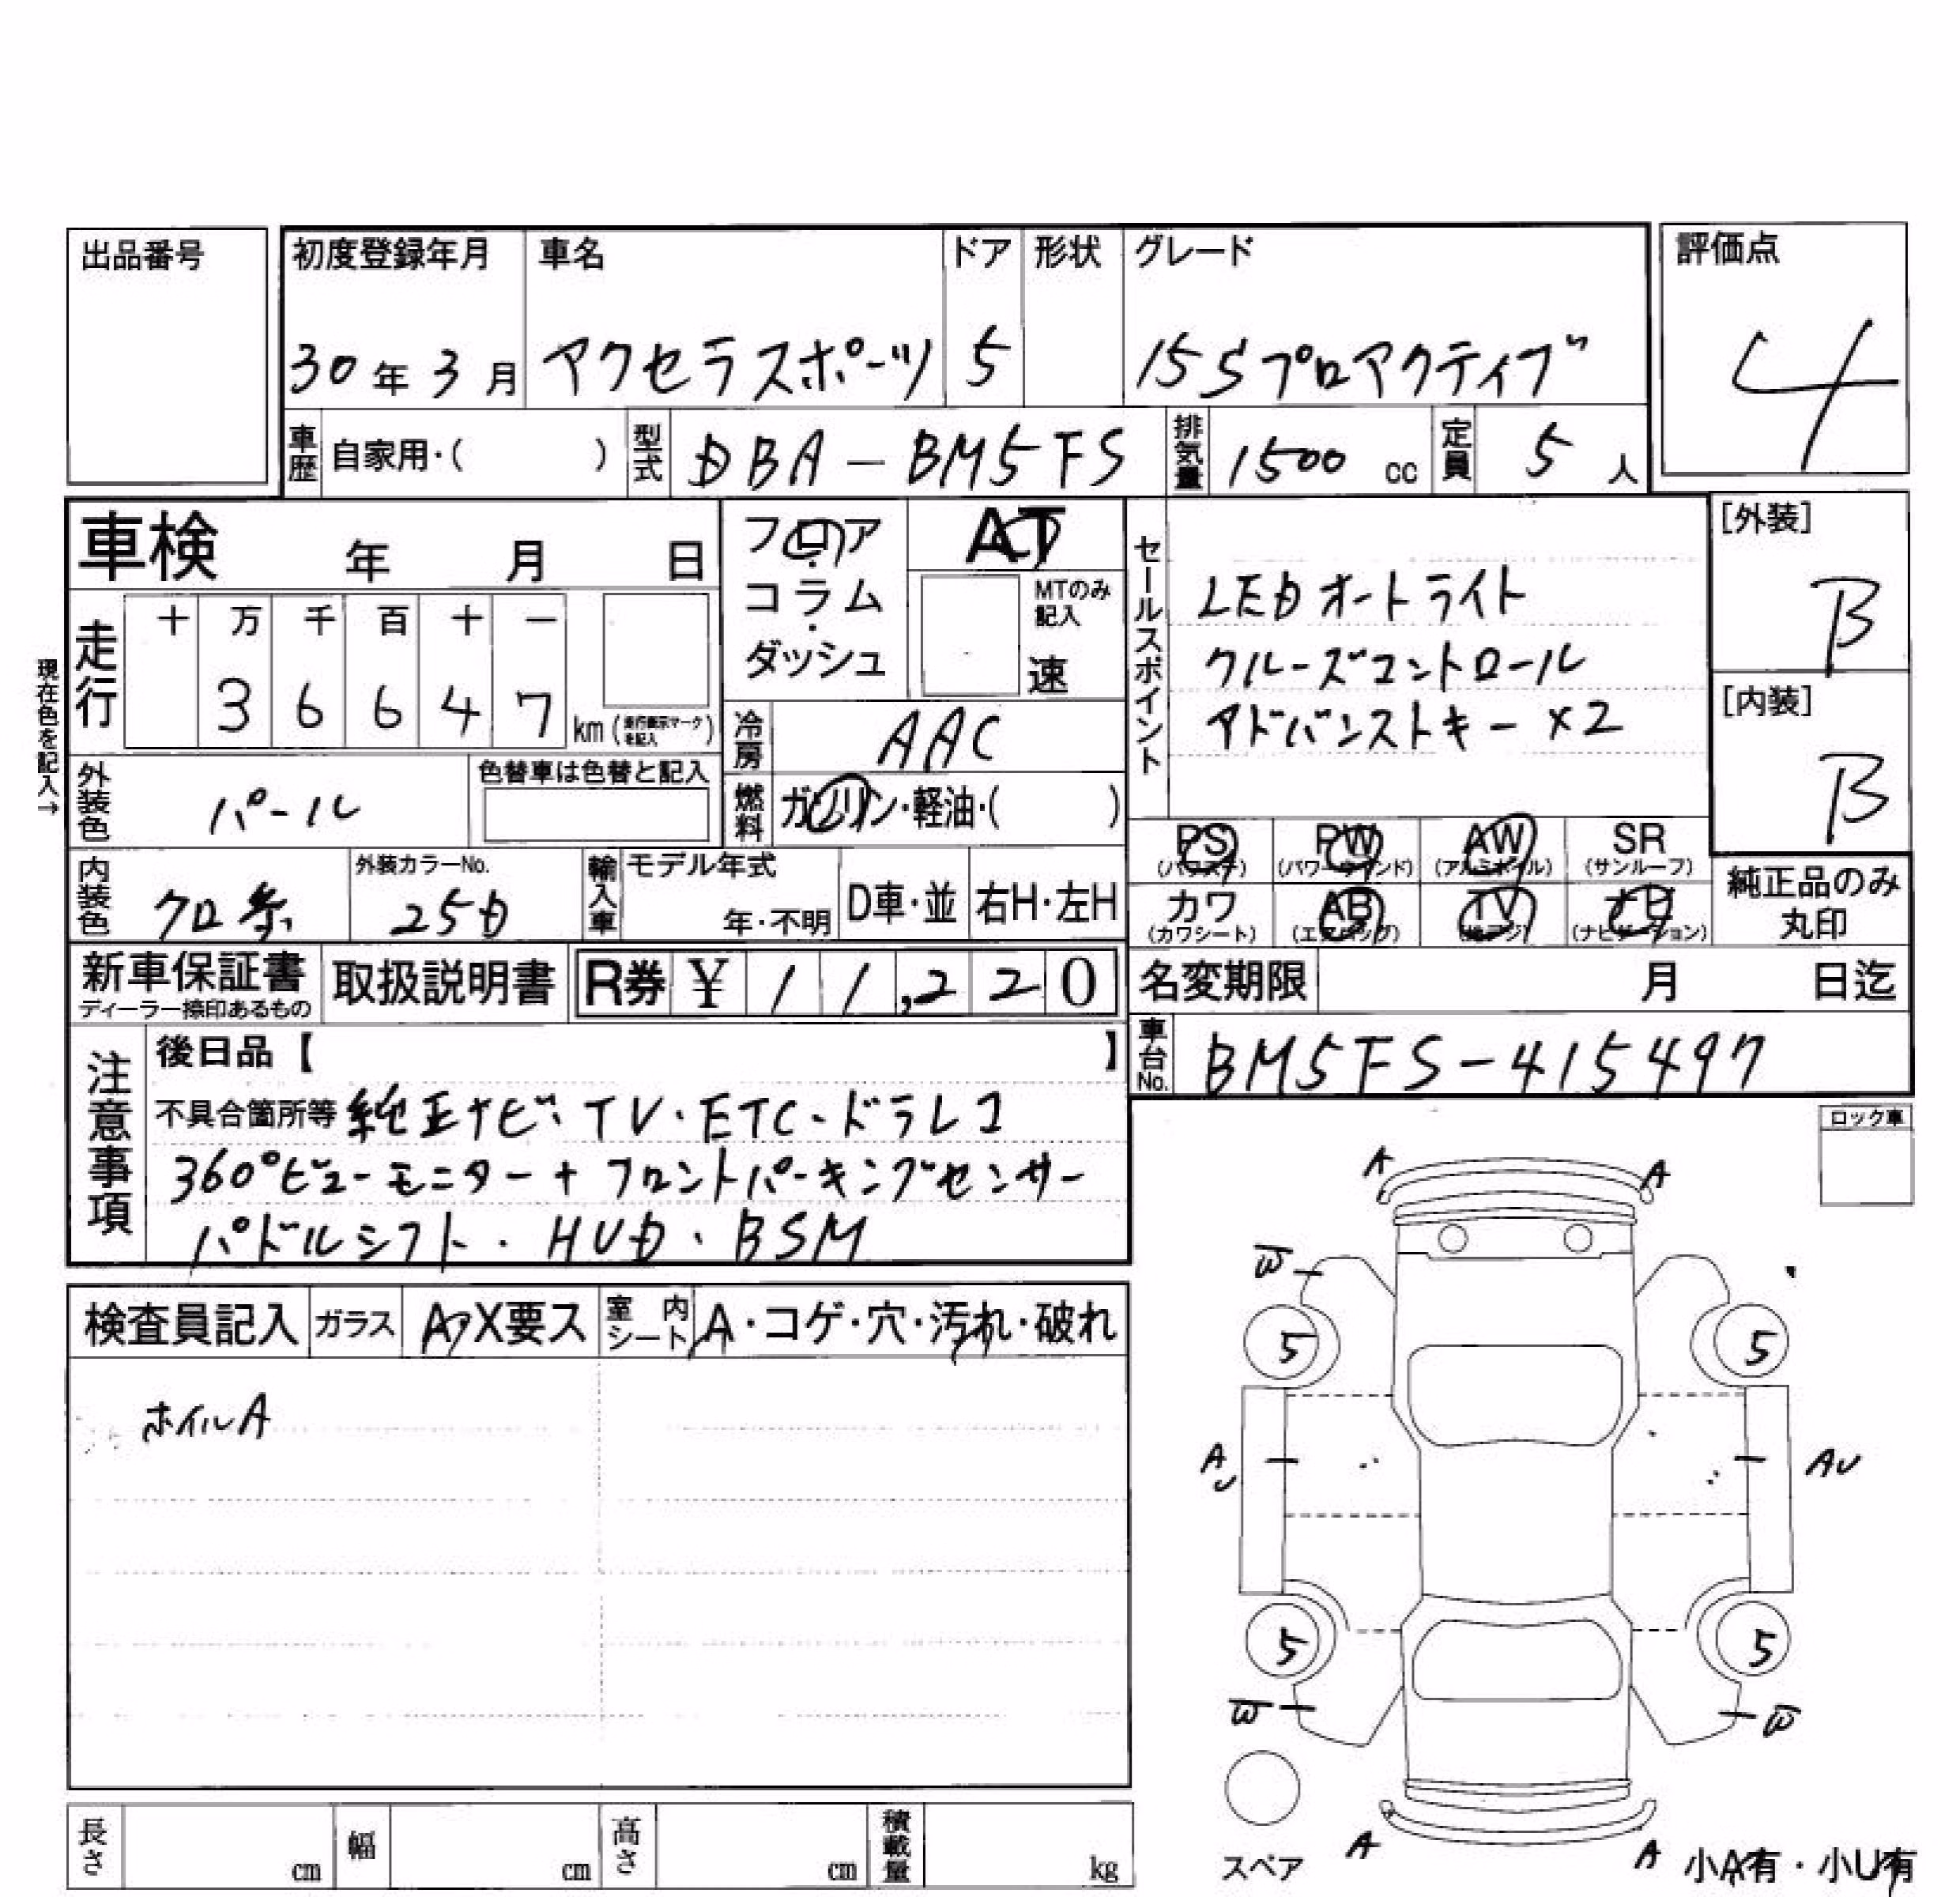 出品番号
初度登録年月 車名 ドア 形状 グレード 評価点
30年3月 アクセラスポーツ 5 15Sプロアクティブ 4
車歴 自家用・( ) 型式 DBA-BM5FS 排気量 1500cc 定員 5人
車検 年 月 日
フロア・コラム・ダッシュ
AT
MTのみ記入
速
セールスポイント
LEDオートライト
クルーズコントロール
アドバンストキー×2
[外装]
B
[内装]
B
現在色を記入→
走行 十 万 千 百 十 一
3 6 6 4 7 km(走行表示マークを記入)
冷房 AAC
外装色 パール 色替車は色替と記入
燃料 ガソリン・軽油・( )
内装色 クロ 外装カラーNo. 25D
輸入車 モデル年式 年・不明 D車・並 右H・左H
PS(パワステ) PW(パワーウインド) AW(アルミホイル) SR(サンルーフ)
カワ(カワシート) AB(エアバッグ) TV(地デジ) ナビ(ナビゲーション)
純正品のみ丸印
新車保証書 ディーラー捺印あるもの 取扱説明書 R券 ¥ 11,220
名変期限 月 日迄
車台No. BM5FS-415497
注意事項
後日品【 】
不具合箇所等 純正ナビ・TV・ETC・ドラレコ
360°ビューモニター+フロントパーキングセンサー
パドルシフト・HUD・BSM
ロック車
検査員記入 ガラス A・X要ス 室内シート A・コゲ・穴・汚れ・破れ
ホイルA
A A
W
5 5
AU AU
5 5
W W
スペア
A A
小A有・小U有
長さ cm 幅 cm 高さ cm 積載量 kg